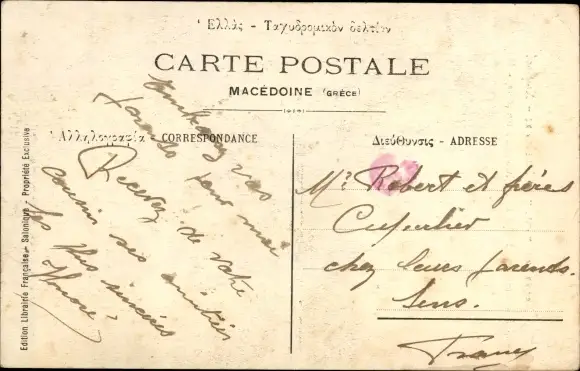 Ἑλλάς - Ταχυδρομικὸν δελτίον
CARTE POSTALE
MACÉDOINE (GRÈCE)
Ἀλληλογραφία - CORRESPONDANCE
Διεύθυνσις - ADRESSE
Edition Librairie Française - Salonique - Propriété Exclusive
Embrassez vos
parents pour moi
Recevez de votre
cousin ses amitiés
les plus sincères
Mr Robert et frères
chez leurs parents.
Sens.
France